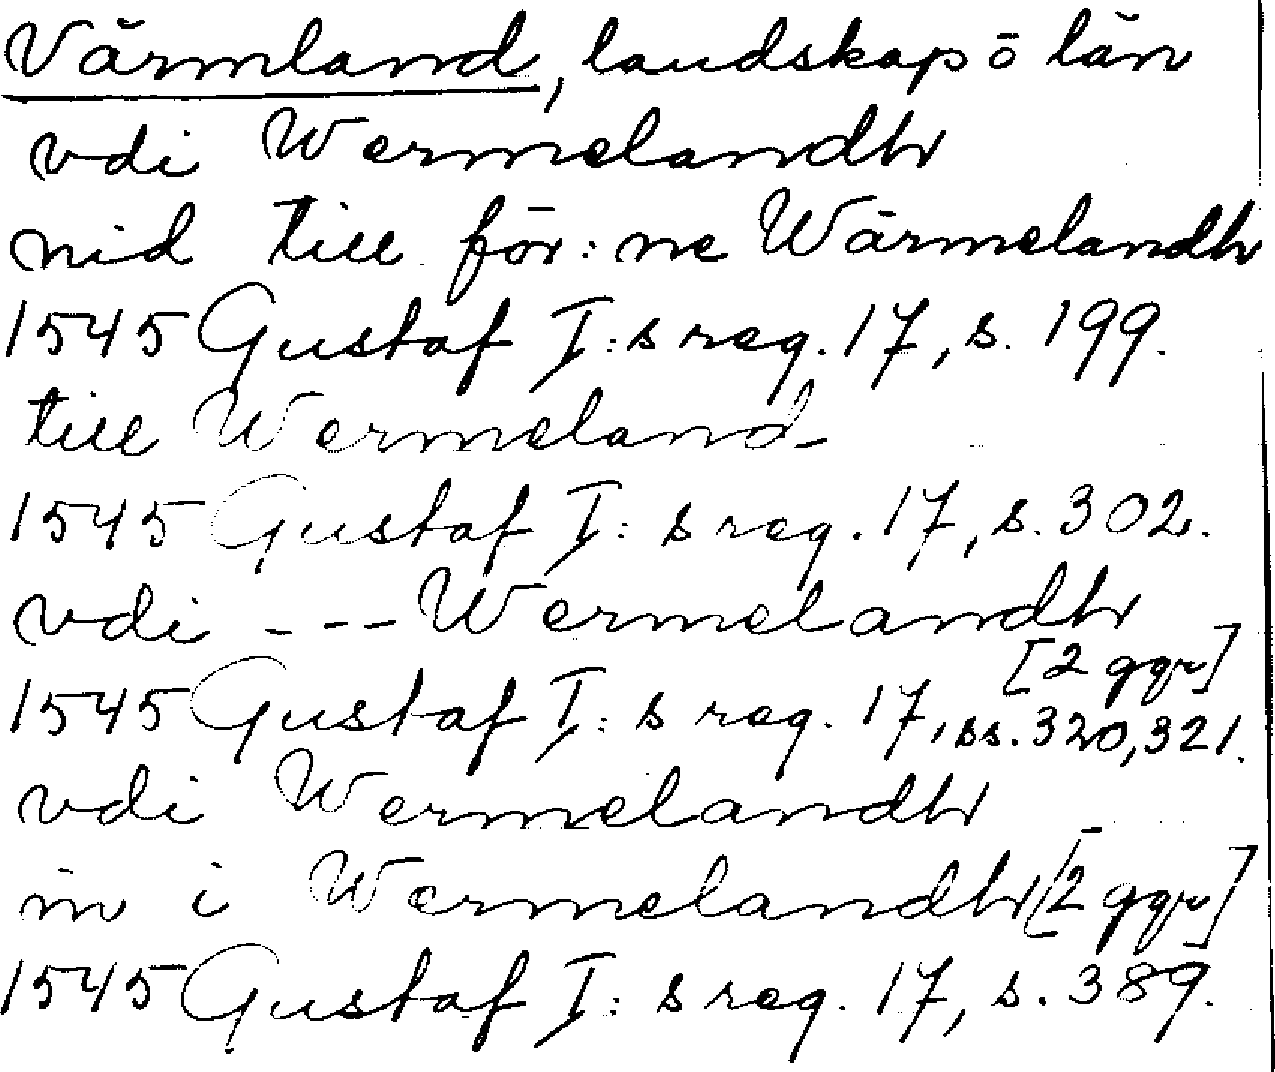 Värmland, landskap o län
vdi Wermelandh
nid till för:ne Wärmelandh
1545 Gustaf I:s reg. 17, s. 199.
till Wermeland
1545 Gustaf I:s reg. 17, s. 302.
vdi --- Wermelandh
[2 ggr]
1545 Gustaf I:s reg. 17, ss. 320, 321.
vdi Wermelandh
in i Wermelandh [2 ggr]
1545 Gustaf I:s reg. 17, s. 389.